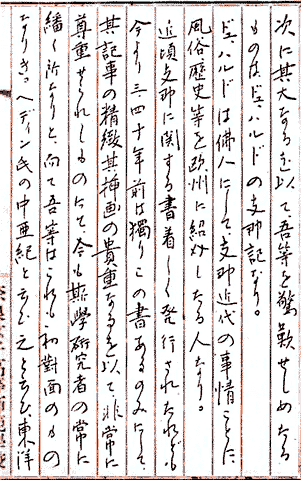 次に其大なるを以て吾等を驚歎せしめたる
ものはドュ、ハルドの支那記なり。
ドュ、ハルドは佛人にして支那近代の事情ことに
風俗歴史等を欧州に紹介したる人なり。
近頃支那に関する書着しく発行されたれども
今より三四十年前は獨りこの書あるのみにして
其記事の精緻其挿画の貴重なるを以て非常に
尊重せられしものにて、今も斯學研究者の常に
繙く所なりと向て吾等はこれも初對面のもの
なりき。ヘディン氏の中亜紀と云ひ之と云ひ、東洋